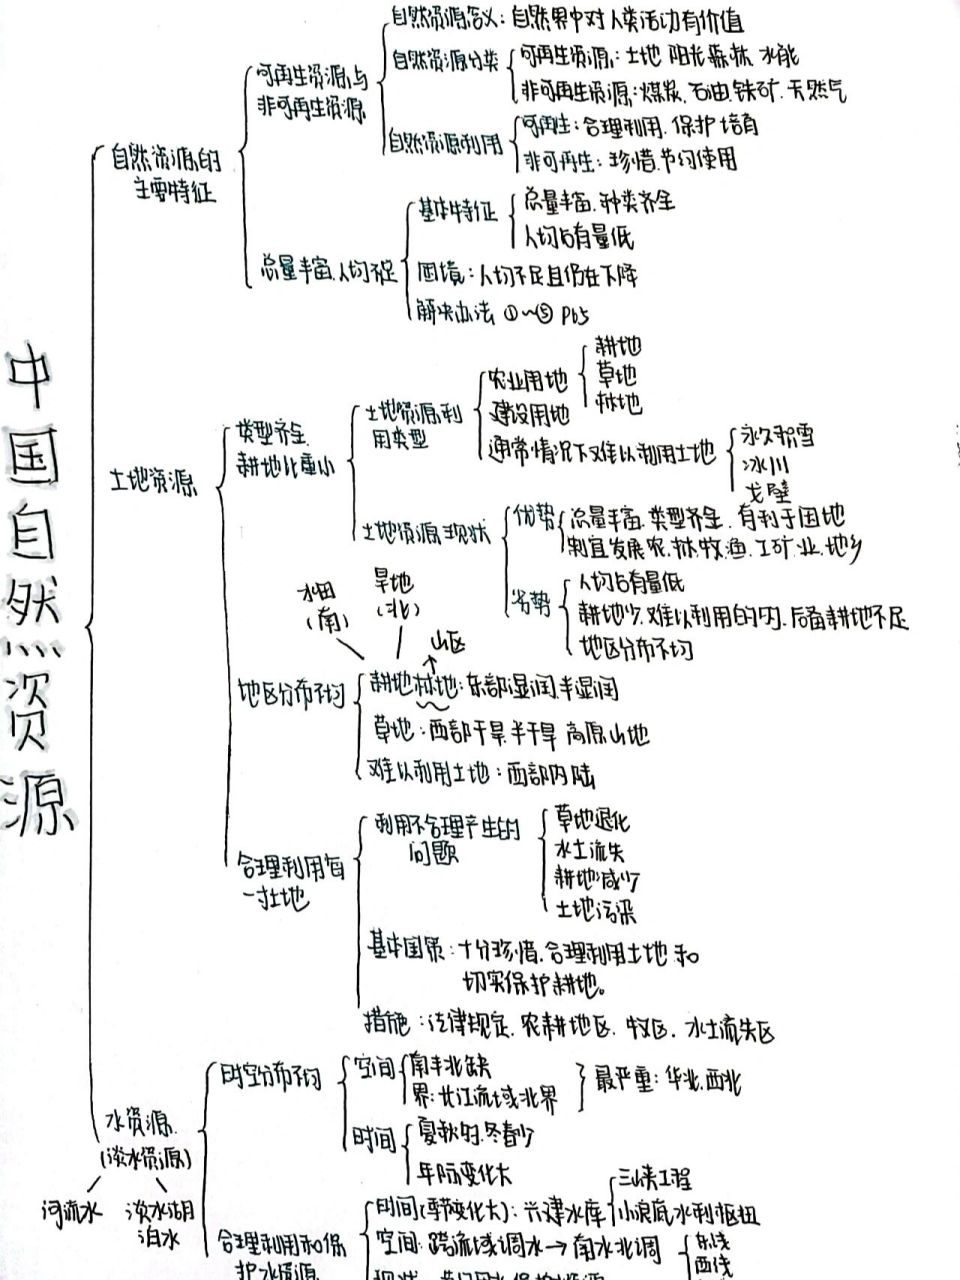 中国自然资源
自然资源的
主要特征
可再生资源与
非可再生资源
自然资源含义：自然界中对人类活动有价值
自然资源分类
可再生资源：土地 阳光 森林 水能
非可再生资源：煤炭、石油、铁矿、天然气
自然资源利用
可再生：合理利用、保护培育
非可再生：珍惜、节约使用
总量丰富、人均不足
基本特征
总量丰富、种类齐全
人均占有量低
困境：人均不足且仍在下降
解决办法 ①～⑤ P65
土地资源
类型齐全、
耕地比重小
土地资源利
用类型
农业用地
耕地
草地
林地
建设用地
通常情况下难以利用土地
永久积雪
冰川
戈壁
土地资源现状
优势
总量丰富、类型齐全、有利于因地
制宜发展农、林、牧、渔、工矿业、地乡
劣势
人均占有量低
耕地少、难以利用的多、后备耕地不足
地区分布不均
水田
（南）
旱地
（北）
山区
地区分布不均
耕地林地：东部湿润、半湿润
草地：西部干旱、半干旱 高原山地
难以利用土地：西部内陆
合理利用每
一寸土地
利用不合理产生的
问题
草地退化
水土流失
耕地减少
土地污染
基本国策：十分珍惜、合理利用土地和
切实保护耕地。
措施：法律规定、农耕地区、牧区、水土流失区
水资源
（淡水资源）
河流水
淡水湖
泊水
时空分布不均
空间
南丰北缺
界：长江流域北界
最严重：华北、西北
时间
夏秋多、冬春少
年际变化大
合理利用和保
护水资源
时间（季节变化大）：兴建水库
三峡工程
小浪底水利枢纽
空间：跨流域调水→南水北调
东线
西线